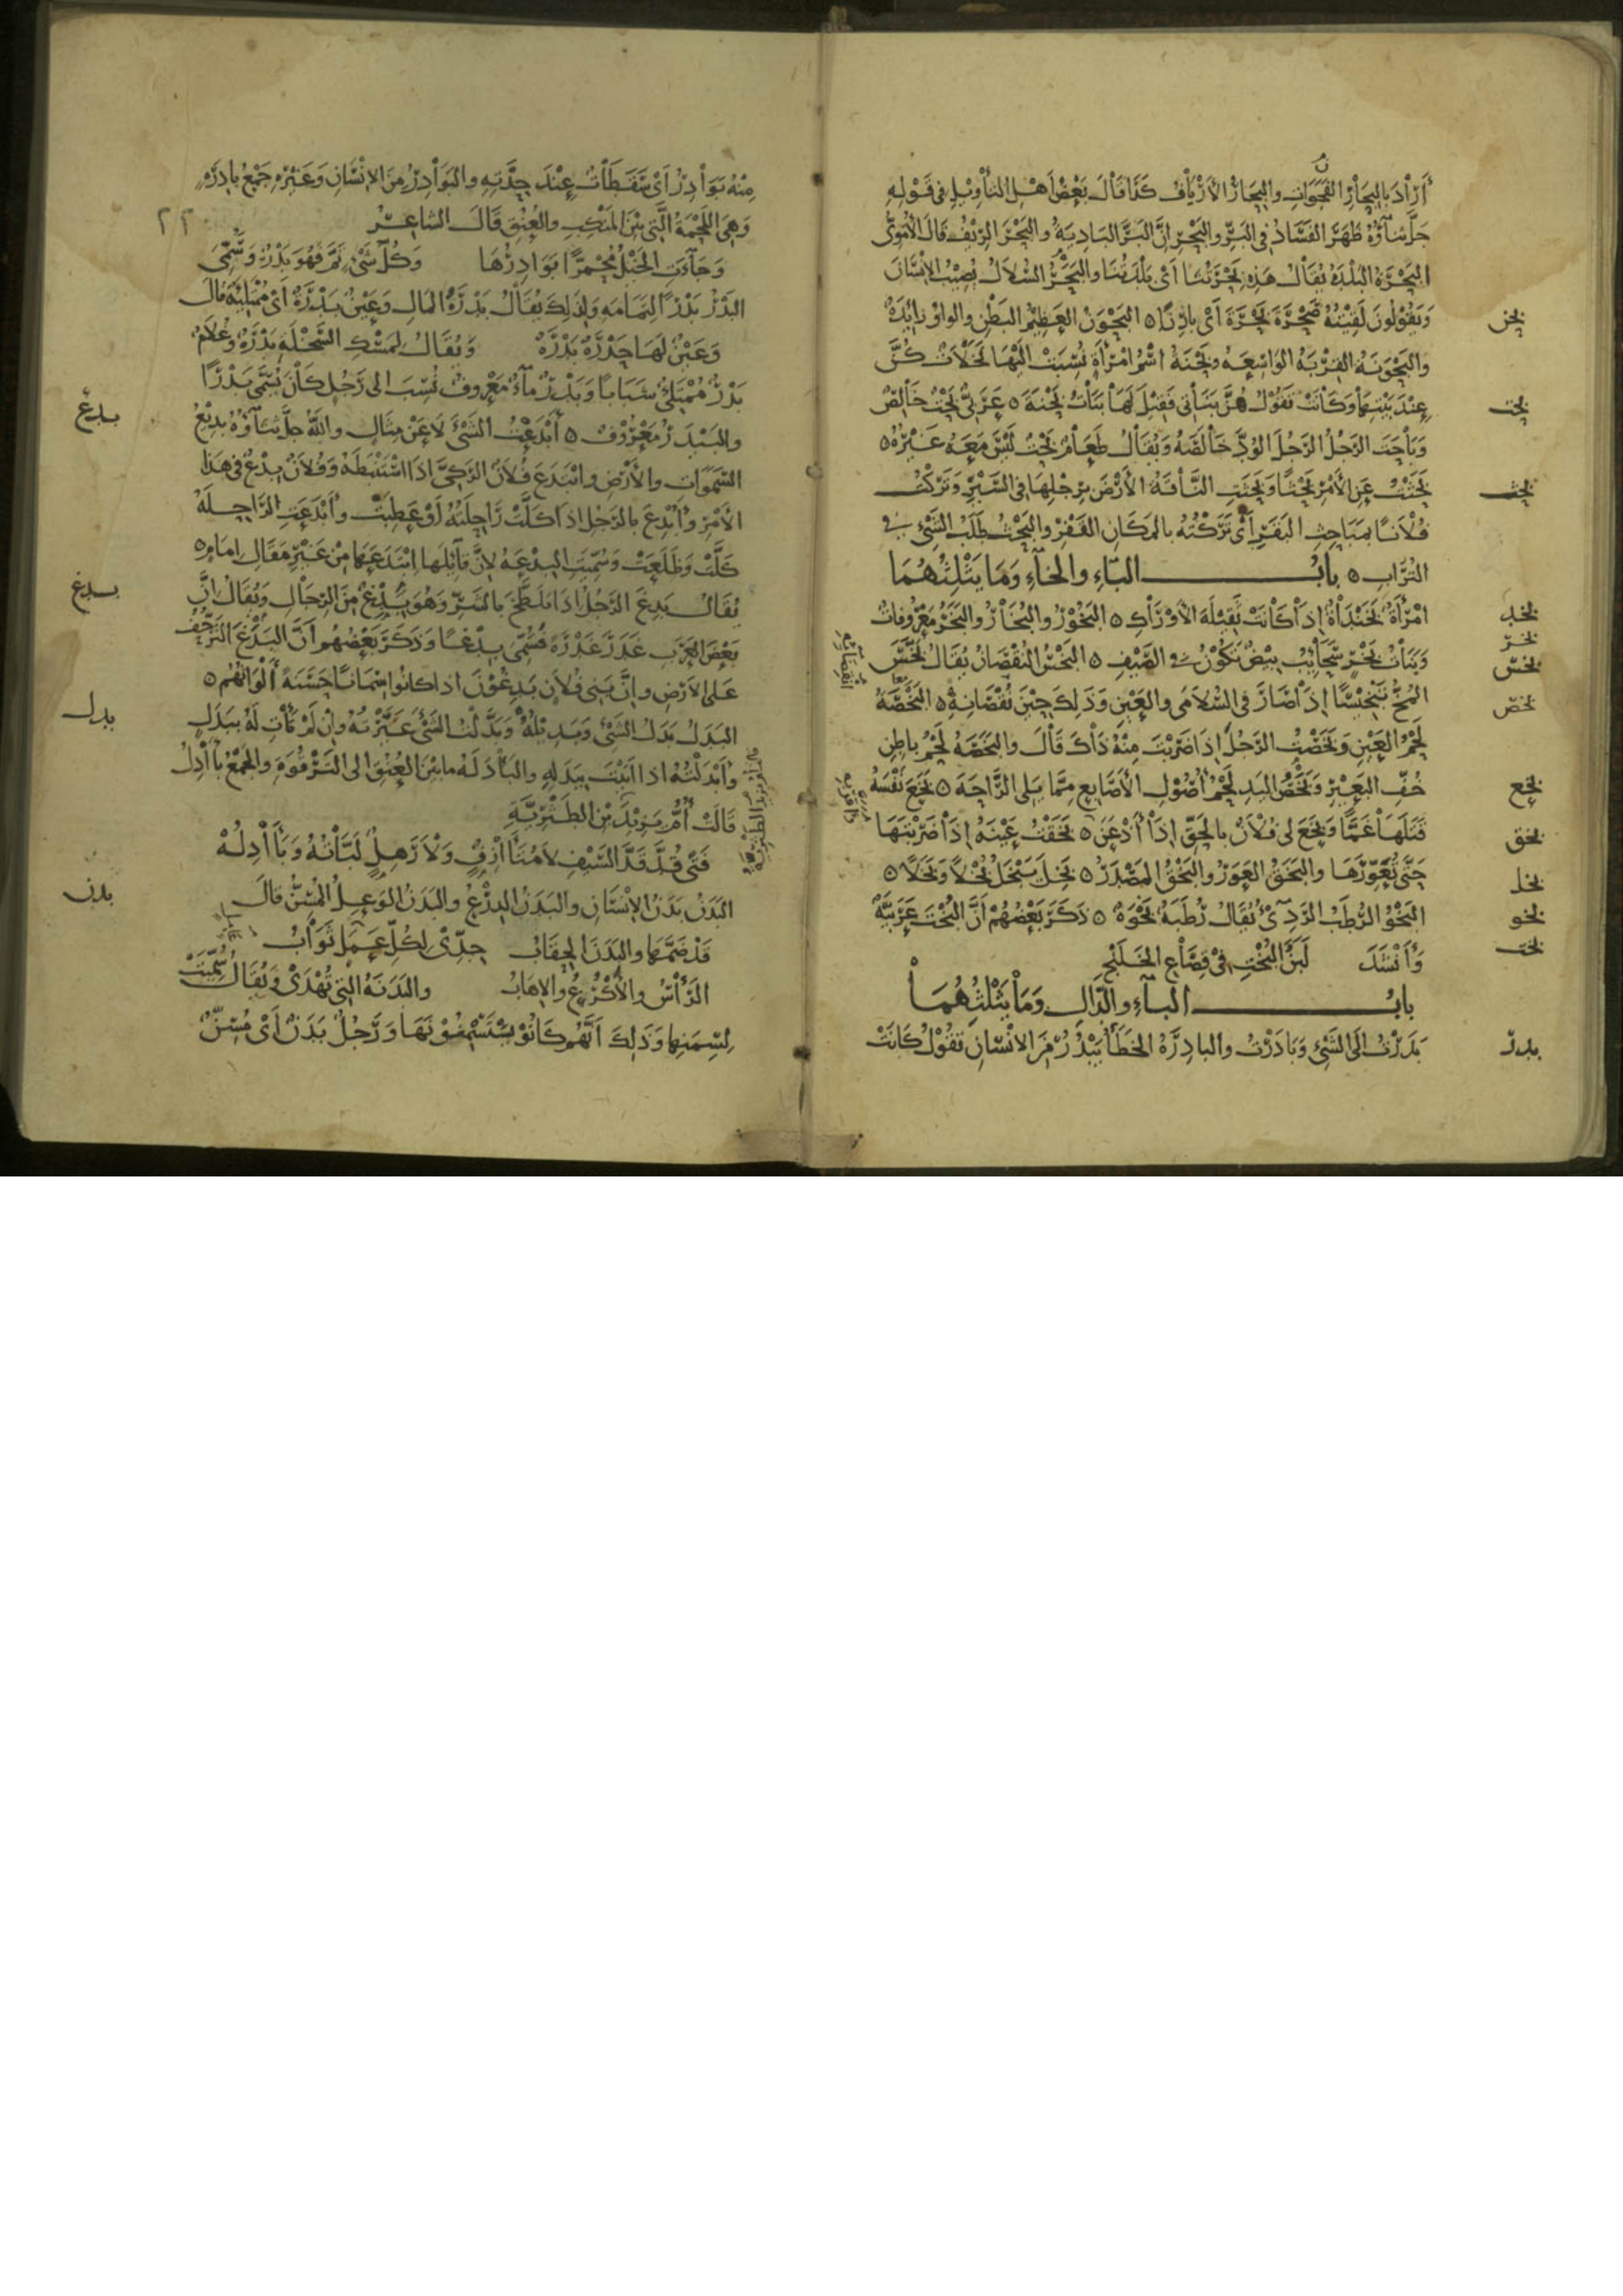 أراد بالبحار الفجوات والبحار الأرياف كذا قال بعض أهل التأويل في قوله
جل ثناؤه ظهر الفساد في البر والبحر ان البر البادية والبحر الريف قال الأموي
البحرة البلدة يقال هذه بحرتنا أي بلدتنا والبحر السلال يصيب الإنسان
بحن
ويقولون لقيته صحرة بحرة أي بارزا ه البحون العظيم البطن والواو زائدة
والبحونة القربة الواسعة وبحنة اسم امرأة نسبت اليها نخلات كن
بحت
عند بيتها وكانت تقول هن بناتي فقيل لها بنات بحنة ه عربي بحت خالص
وباحت الرجل الرجل الود خالصه ويقال طعام بحت ليس معه غيره ه
بحث
بحثت عن الأمر بحثا وبحثت الناقة الأرض برجلها في السير وتركت
فلانا بمباحث البقر أي تركته بالمكان القفر والبحث طلب الشيء في
التراب ه باب الباء والخاء وما يثلثهما
بخد
امرأة بخنداة إذا كانت ثقيلة الأوراك ه البخور والبخار والبخر معروفات
بخر
بخس
وبنات بخر سحائب بيض تكون في الصيف ه البخس النقصان يقال بخس
بخص
المخ تبخيسا إذا صار في السلامى والعين وذلك حين نقصانه ه البخصة
لحم العين وبخصت الرجل إذا ضربت منه ذاك قال والبخصة لحم باطن
بخع
خف البعير وبخص اليد لحم أصول الأصابع مما يلي الراحة ه بخع نفسه
بخق
قتلها غما وبخع لي فلان بالحق إذا أذعن ه بخقت عينه إذا ضربتها
بخل
حتى تعورها والبخق العور والبخق المصدر ه بخل يبخل بخلا وبخلا ه
بخو
البخو الرطب الردي يقال رطبة بخوة ه ذكر بعضهم أن البخت عربية
بخت
وأنشد لبن البخت في قصاع الخلنج
باب الباء والدال وما يثلثهما
بدر
بدرت الى الشيء وبادرت والبادرة الخطأ يبدر من الانسان تقول كانت
منه بوادر أي سقطات عند حدته والبوادر من الانسان وغيره جمع بادرة
وهي اللحمة التي بين المنكب والعنق قال الشاعر
٢٢
وجاءت الخيل محمرا بوادرها وكل شيء تم فهو بدر وسمي
البدر بدرا لتمامه ولذلك يقال بدرة المال وعين بدرة أي ممتلئة قال
وعين لها حدرة بدرة ويقال لمسك السخلة بدرة وغلام
بدر ممتلئ شبابا وبدر ماء معروف نسب الى رجل كان يسمى بدرا
بدع
والبيدر معروف ه أبدعت الشيء لا عن مثال والله جل ثناؤه بديع
السموات والأرض وابتدع فلان الركي اذا استنبطه وفلان بدع في هذا
الأمر وأبدع بالرجل اذا كلت راحلته أو عطبت وأبدعت الراحلة
كلت وظلعت وسميت البدعة لان قائلها ابتدعها من غير مقال امام ه
بدغ
يقال بدغ الرجل اذا تلطخ بالشر وهو بدغ من الرجال ويقال ان
بعض العرب غدر غدرة فسمي بدغا وذكر بعضهم أن البدغ التزحف
على الأرض وان بني فلان بدغون اذا كانوا سمانا حسنة ألوانهم ه
بدل
البدل بدل الشيء وبديله وبدلت الشيء غيرته وإن لم تأت له ببدل
وأبدلته اذا أتيت ببدله والبأدلة ما بين العنق الى الترقوة والجمع بآدل
قالت أم يزيد بن الطثرية
فتى قد قد السيف لا متآزف ولا رهل لباته وبآدله
بدن
البدن بدن الإنسان والبدن الدرع والبدن الوعل المسن قال
قد ضمها والبدن الحقاب جدي لكل عمل ثواب
الرأس والأكرع والاهاب والبدنة التي تهدى ويقال سميت
لسمنها وذلك أنهم كانوا يستسمنونها ورجل بدن أي مسن